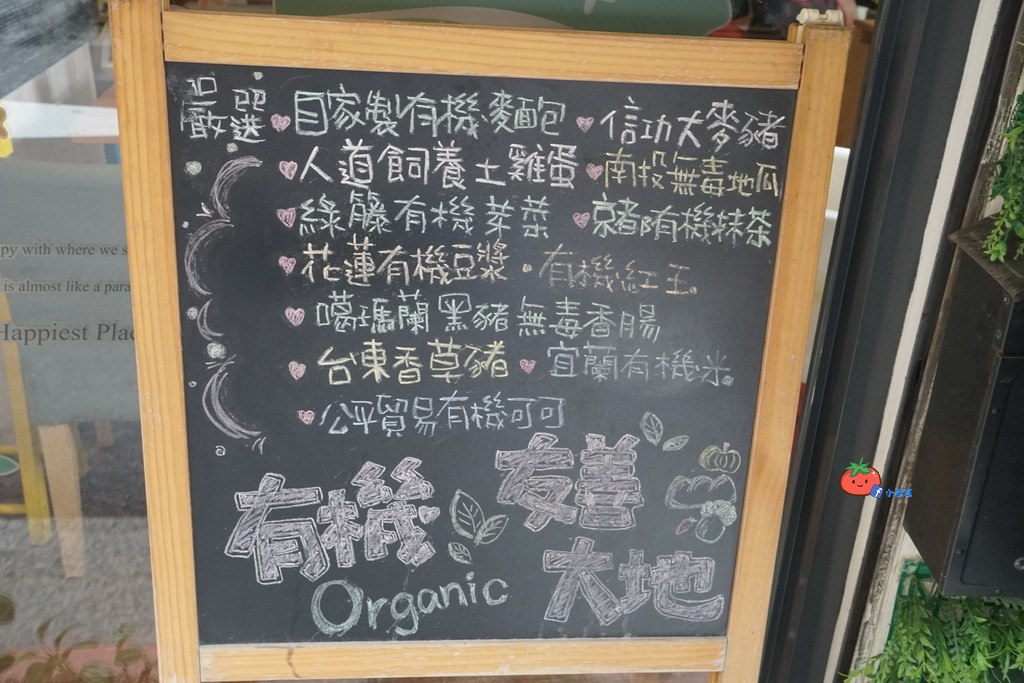 嚴選 自家製有機麵包 信功大麥豬
人道飼養土雞蛋 南投無毒地瓜
綠藤有機芽菜 京都有機抹茶
花蓮有機豆漿 · 有機紅玉
噶瑪蘭黑豬無毒香腸
台東香草豬 宜蘭有機米
公平貿易有機可可
有機 友善
Organic 大地
py with where we s
is almost like a para
Happiest Plac